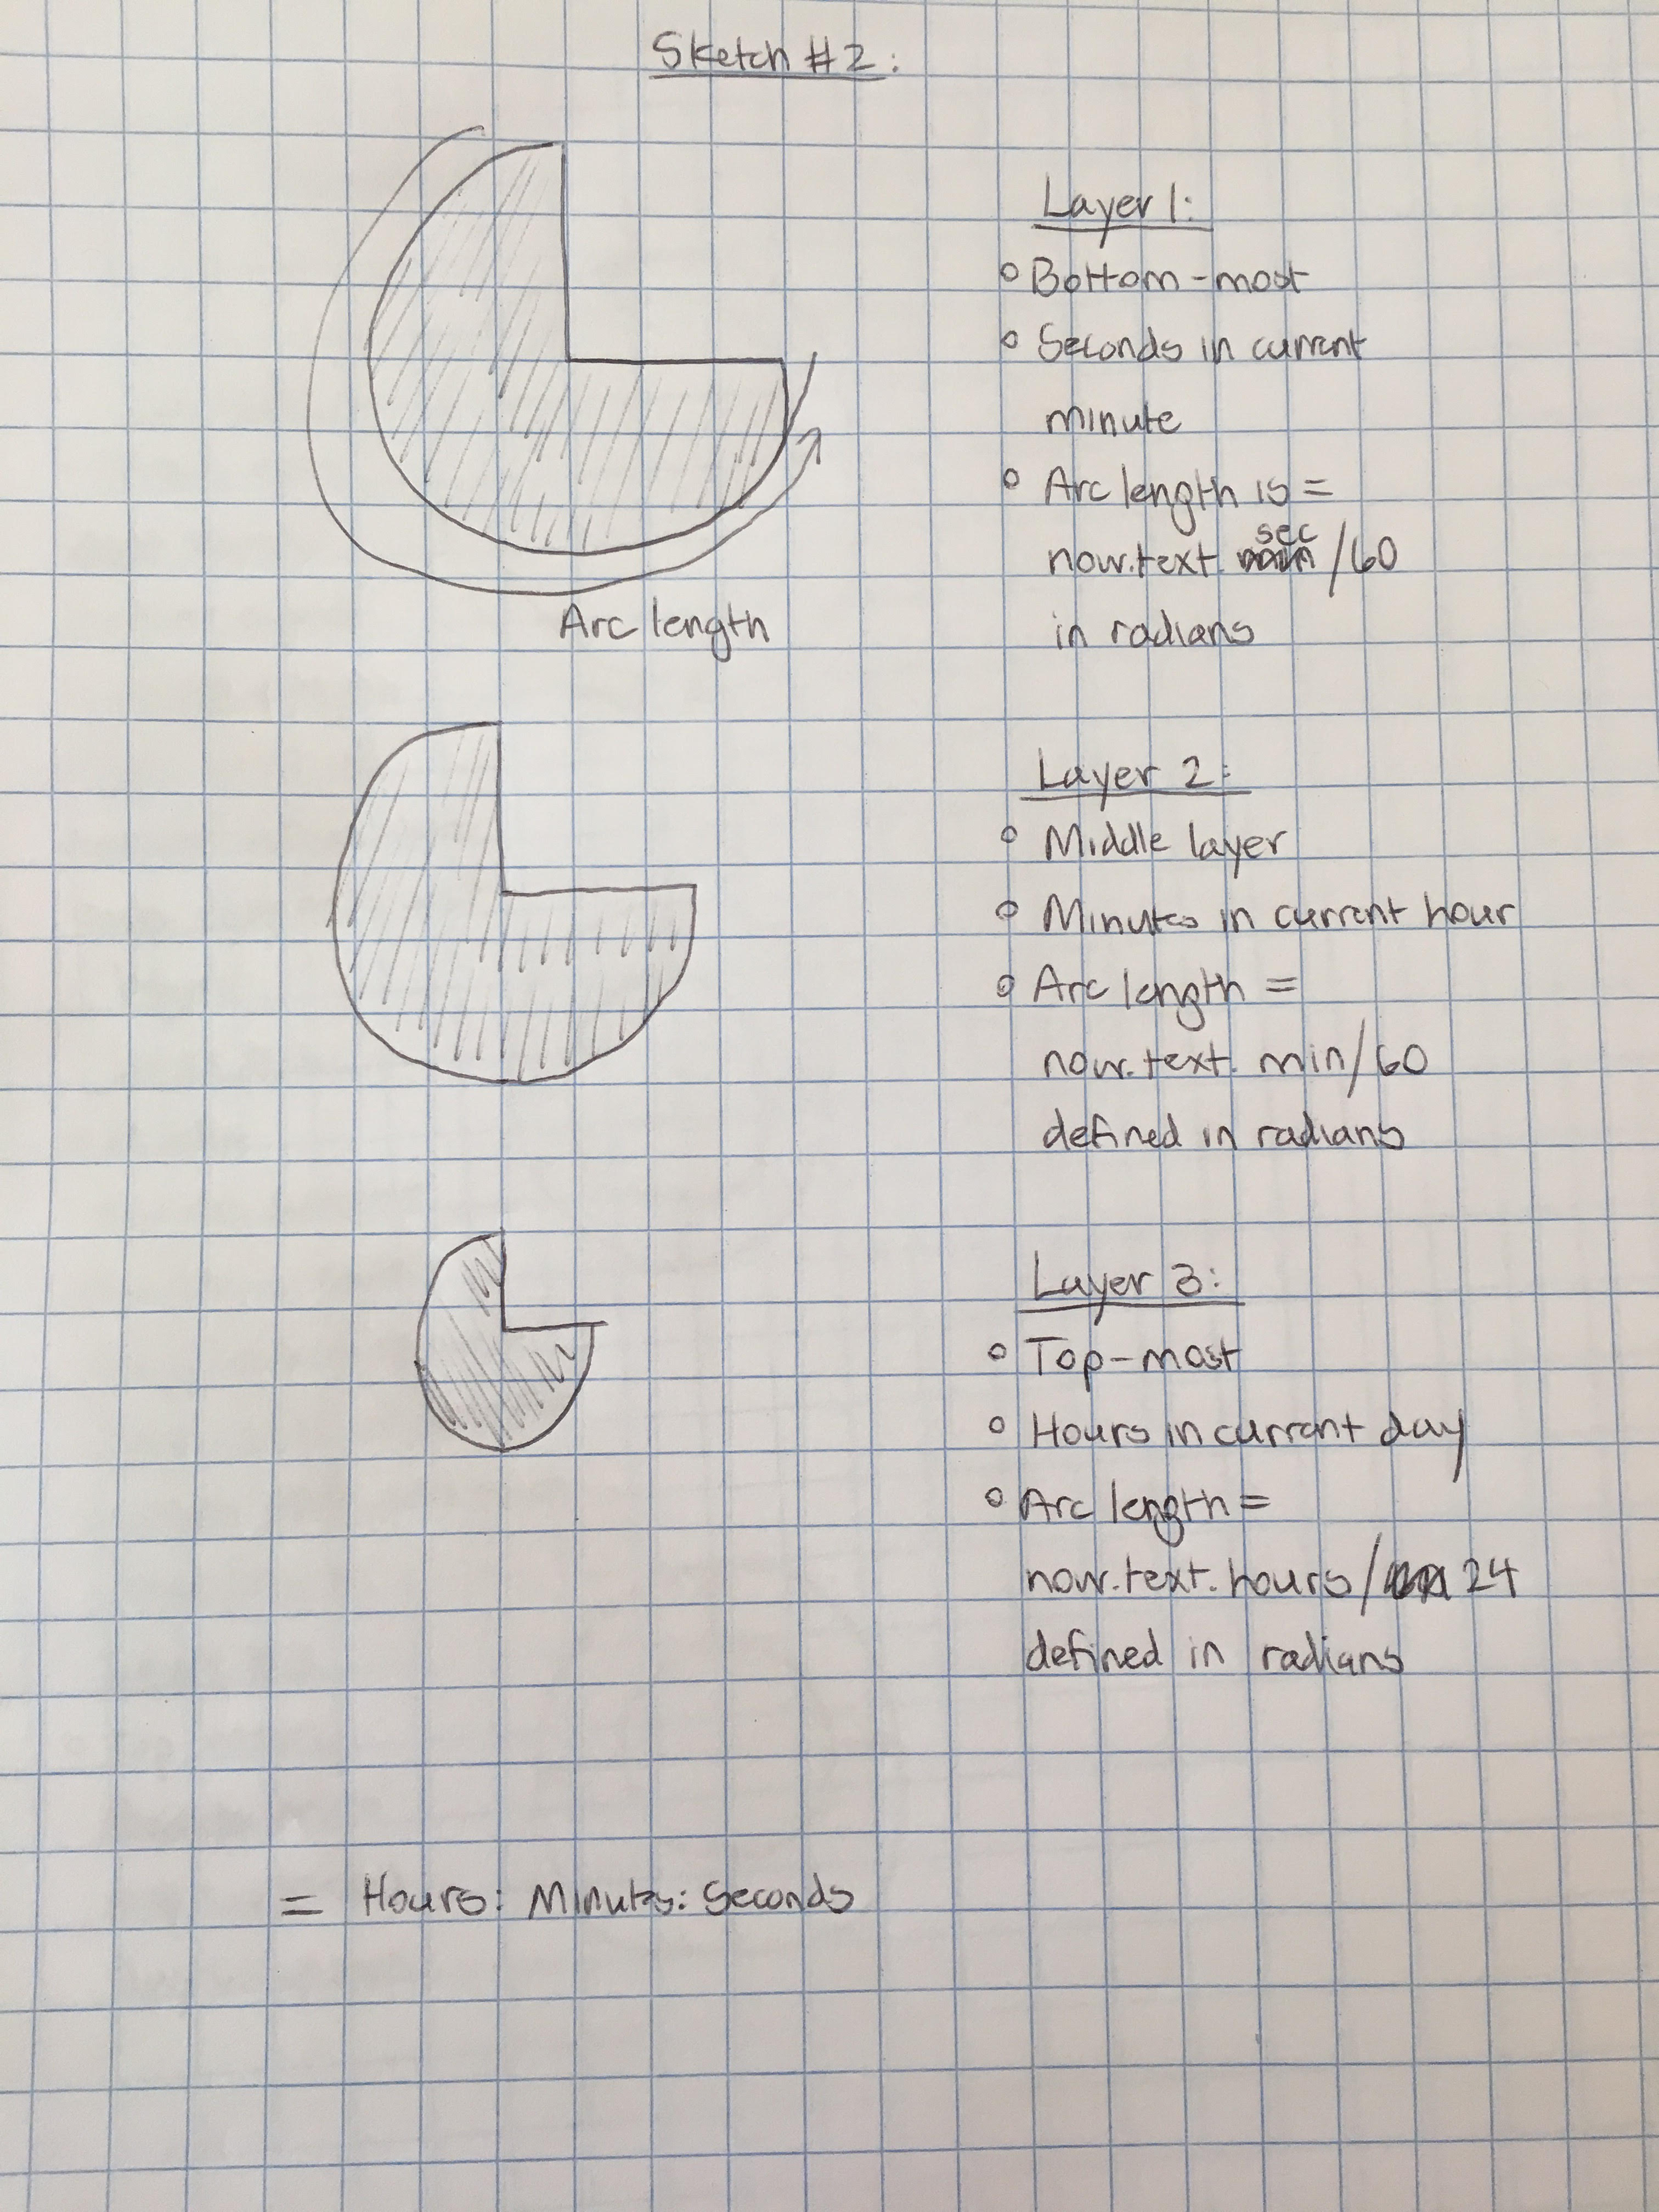 Sketch #2:
Layer 1:
o Bottom-most
o Seconds in current
minute
o Arc length is =
now.text. sec /60
in radians
Arc length
Layer 2:
o Middle layer
o Minutes in current hour
o Arc length =
now.text. min/60
defined in radians
Layer 3:
o Top-most
o Hours in current day
o Arc length =
now.text.hours/ 24
defined in radians
= Hours: Minutes: Seconds